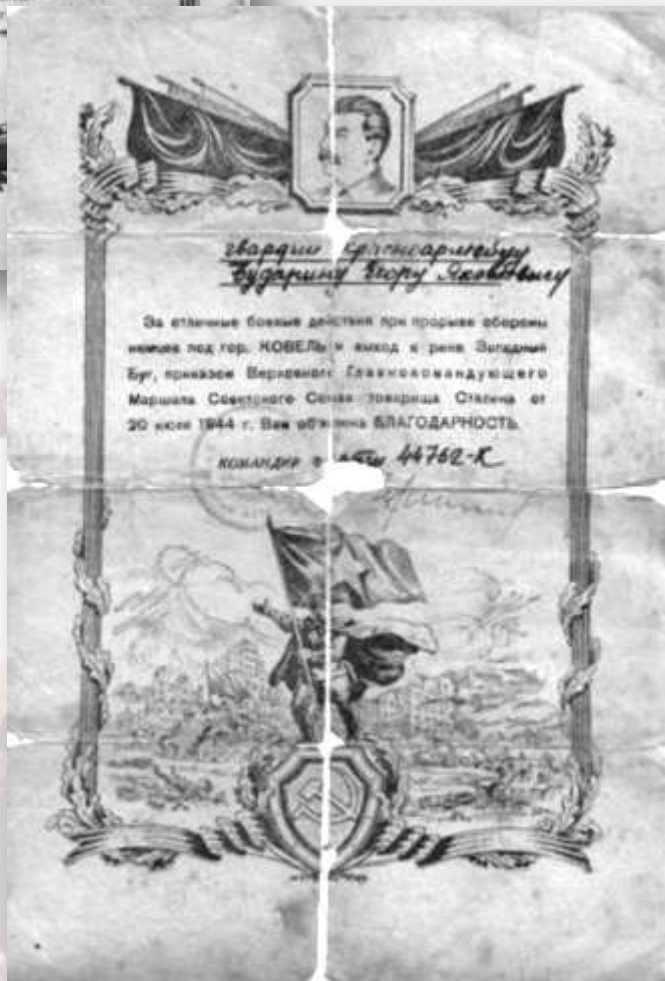 гвардии красноармейцу
Бударину Егору Яковлевичу
За отличные боевые действия при прорыве обороны
немцев под гор. КОВЕЛЬ и выход к реке Западный
Буг, приказом Верховного Главнокомандующего
Маршала Советского Союза товарища Сталина от
20 июля 1944 г. Вам объявлена БЛАГОДАРНОСТЬ.
КОМАНДИР части 44762-К